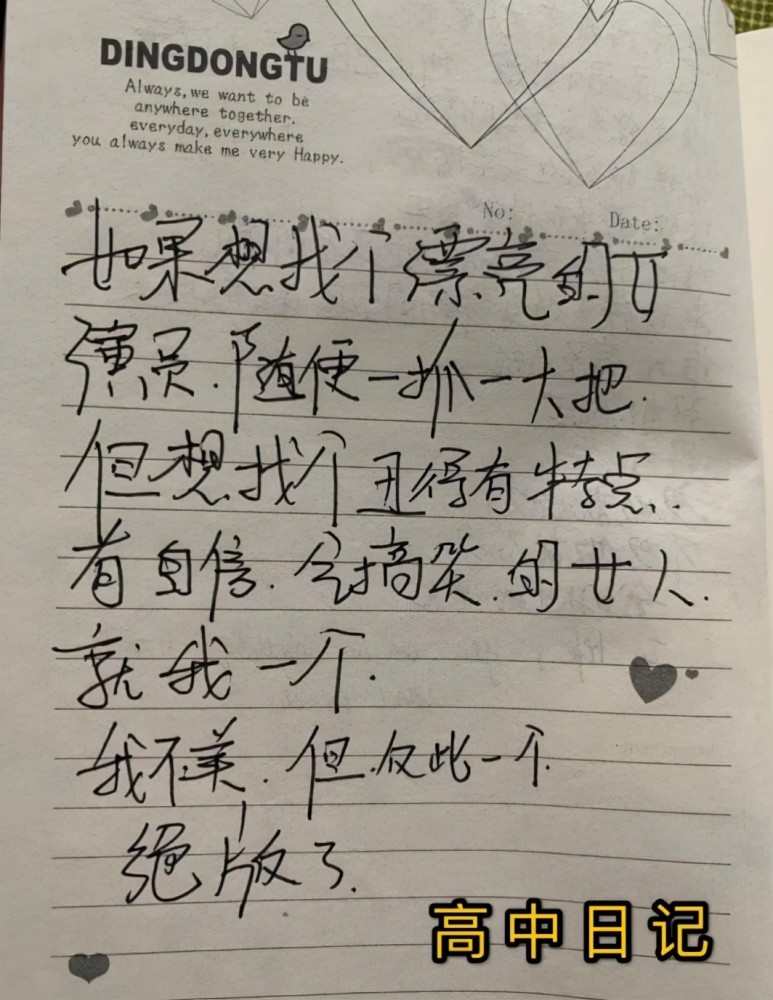 DINGDONGTU
Always,we want to be
anywhere together.
everyday,everywhere
you always make me very Happy.
No:
Date:
如果想找个漂亮的女
演员.随便一抓一大把.
但想找个丑得有特点.
有自信.会搞笑.的女人.
就我一个.
我不美.但.仅此一个.
绝版了.
高中日记